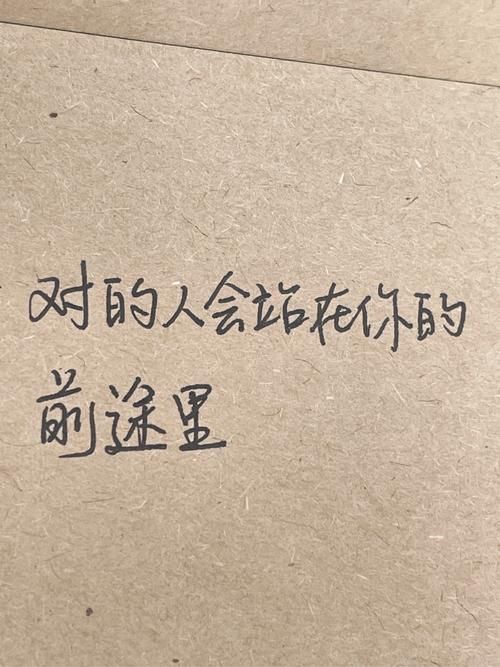 对的人会站在你的
前途里